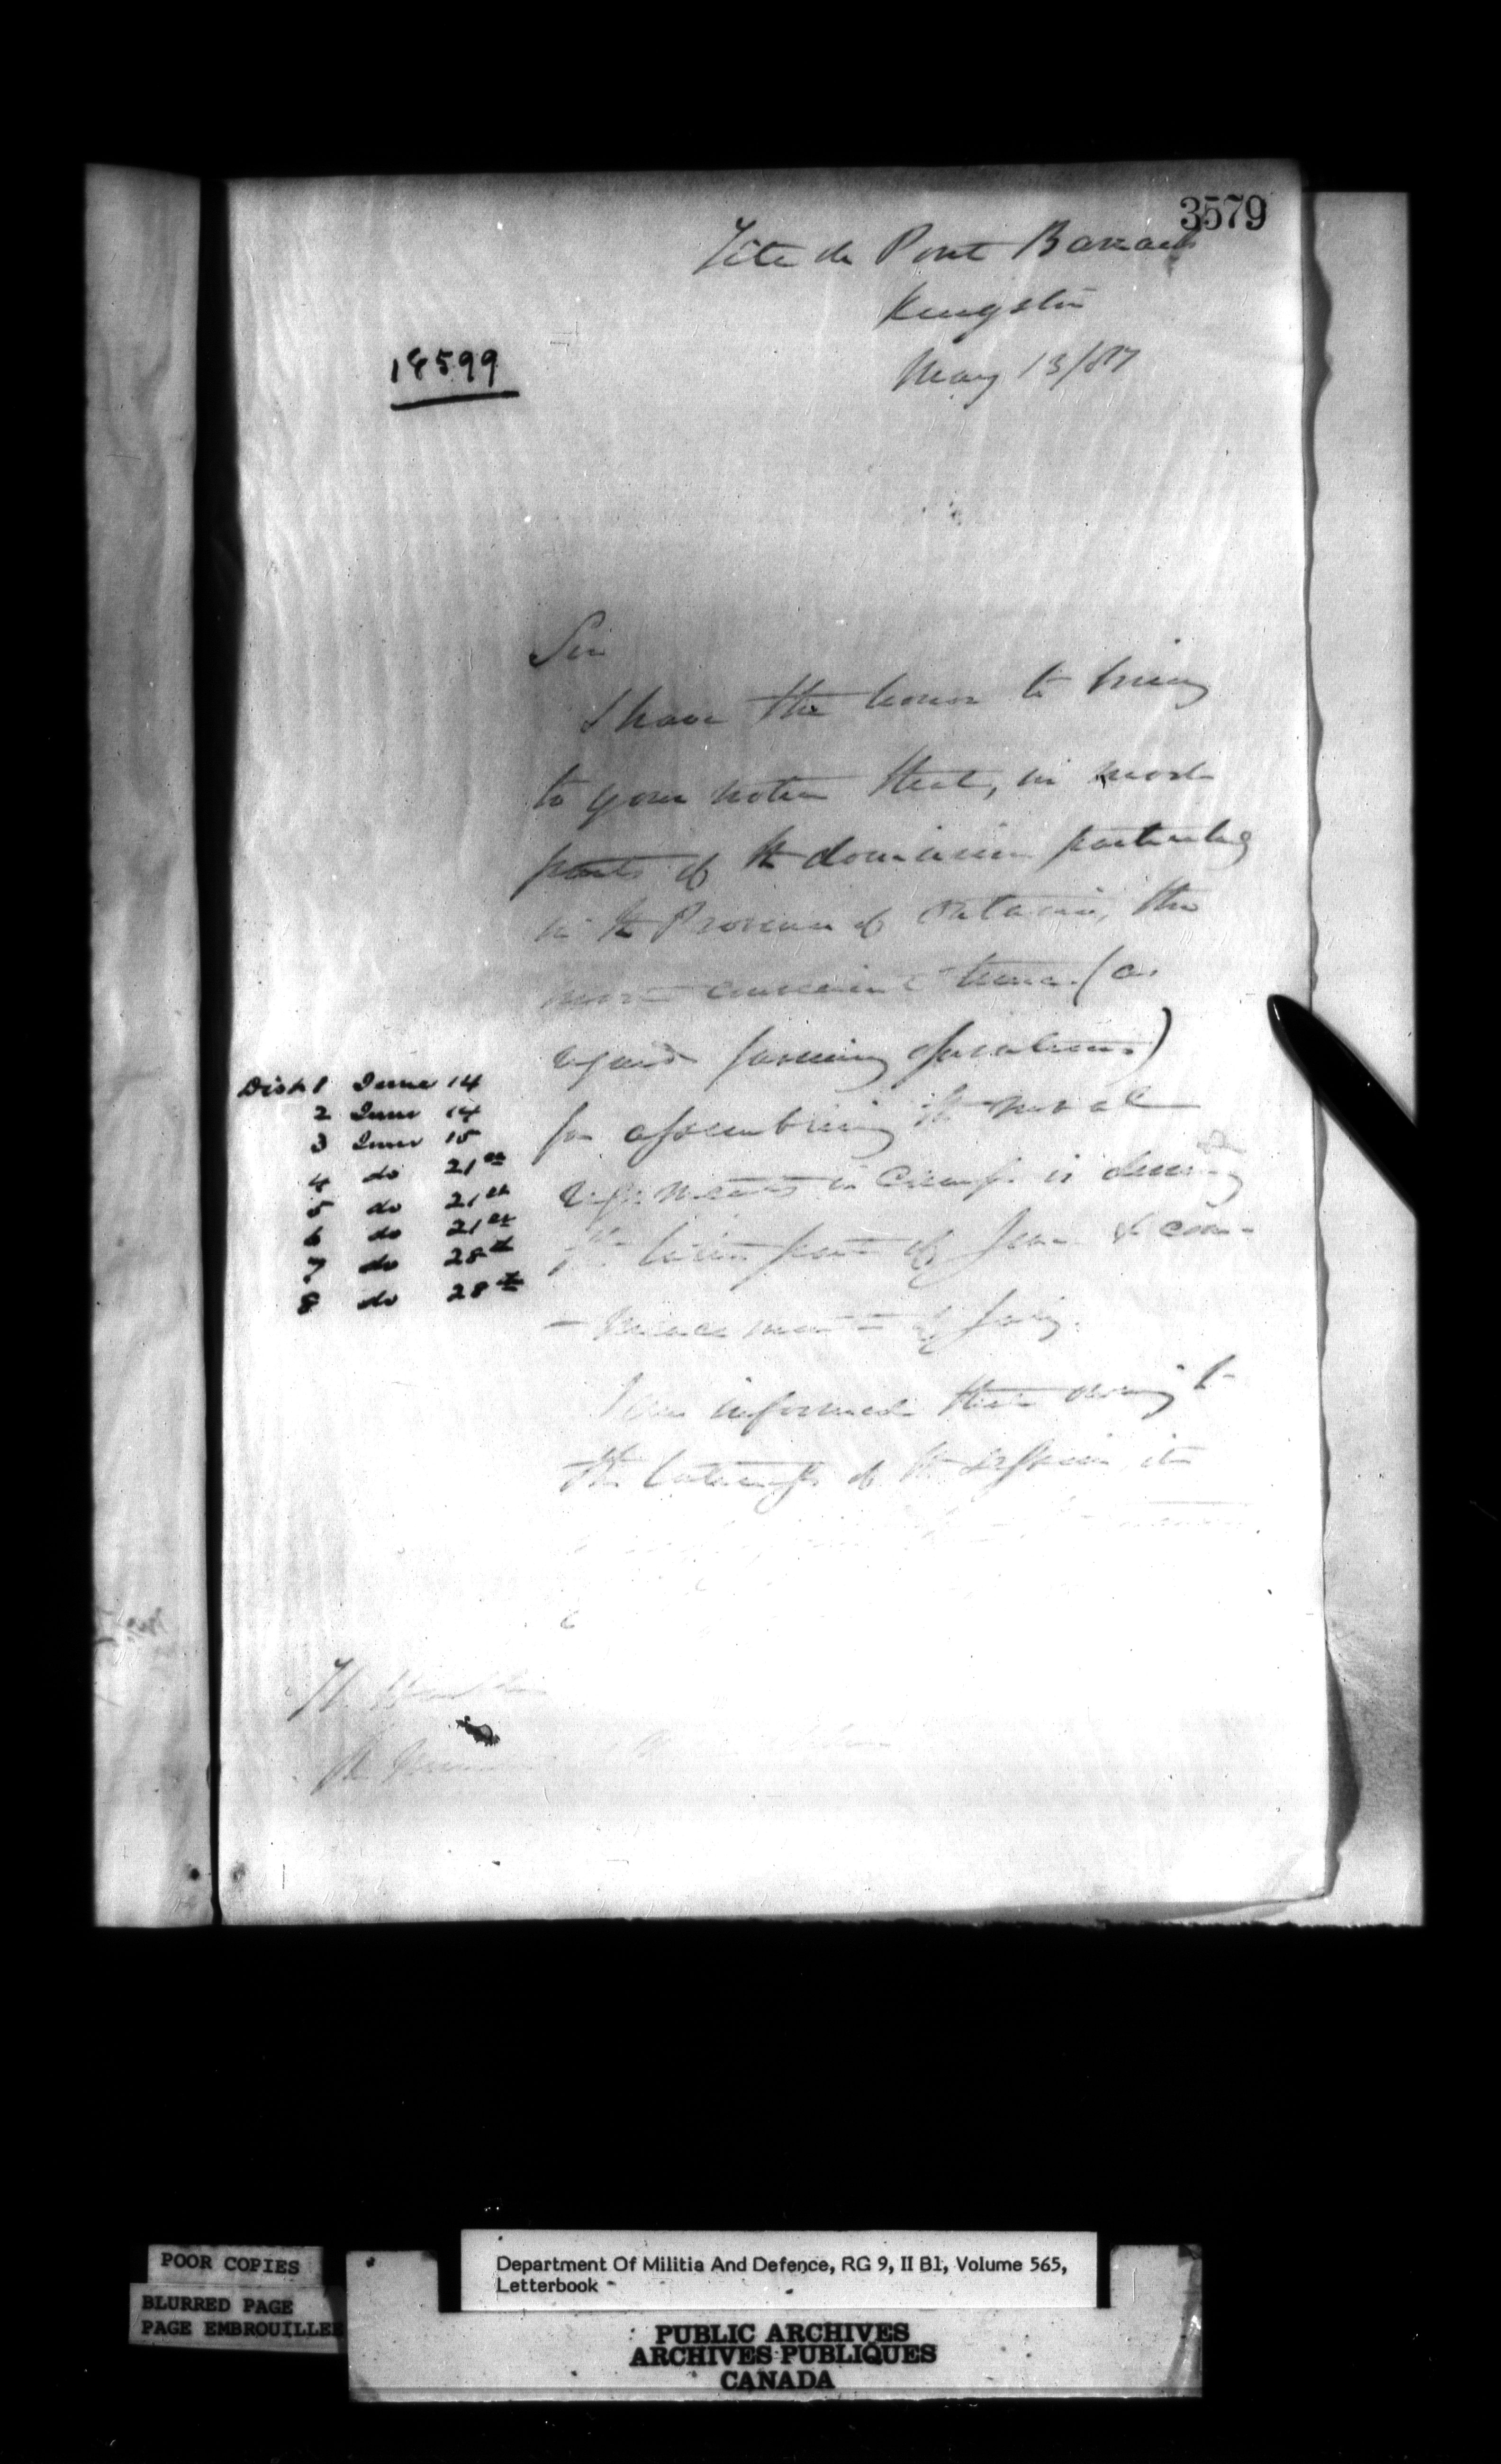 3579
Tête de Pont Barracks
Kingston
May 13/87
18599
Sir
I have the honor to bring
to your notice that, in most
parts of the dominion particularly
in the Province of Ontario, the
most convenient time (as
regards farming operations)
for assembling the rural
regiments in Camp is during
the latter part of June & com-
- mencement of July.
Dist 1 June 14
2 June 14
3 June 15
4 do 21st
5 do 21st
6 do 21st
7 do 28th
8 do 28th
I am informed that owing to
the lateness of the Session it
POOR COPIES
BLURRED PAGE
PAGE EMBROUILLEE
Department Of Militia And Defence, RG 9, II B1, Volume 565,
Letterbook
PUBLIC ARCHIVES
ARCHIVES PUBLIQUES
CANADA